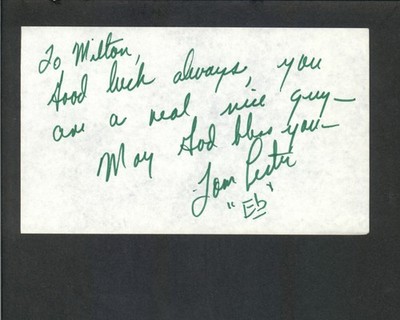 To Milton,
Good luck always, you
are a real nice guy—
May God bless you—
Tom Lester
"Eb"